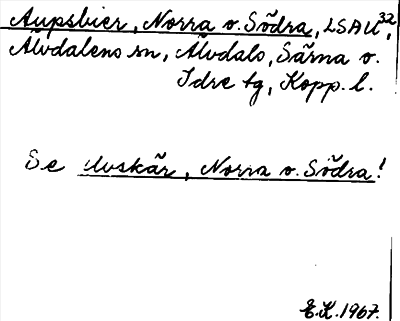 Aupsbier, Norra o. Södra, LSAU32,
Älvdalens sn, Älvdals, Särna o.
Idre tg, Kopp. l.
Se Uvskär, Norra o. Södra!
E.K. 1967.